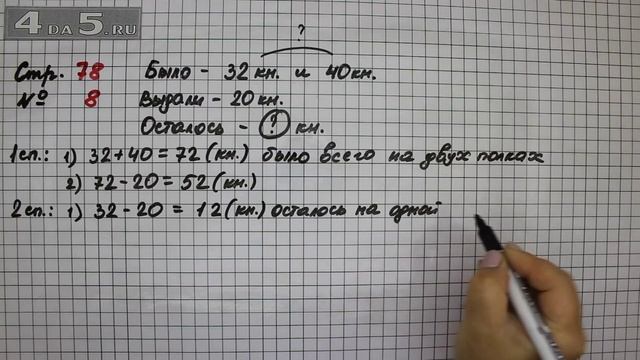 4DA5.RU
?
Стр. 78 Было - 32 кн. и 40 кн.
№ 8 Выдали - 20 кн.
Осталось - ? кн.
1 сп.: 1) 32 + 40 = 72 (кн.) было всего на двух полках
2) 72 - 20 = 52 (кн.)
2 сп.: 1) 32 - 20 = 12 (кн.) осталось на одной